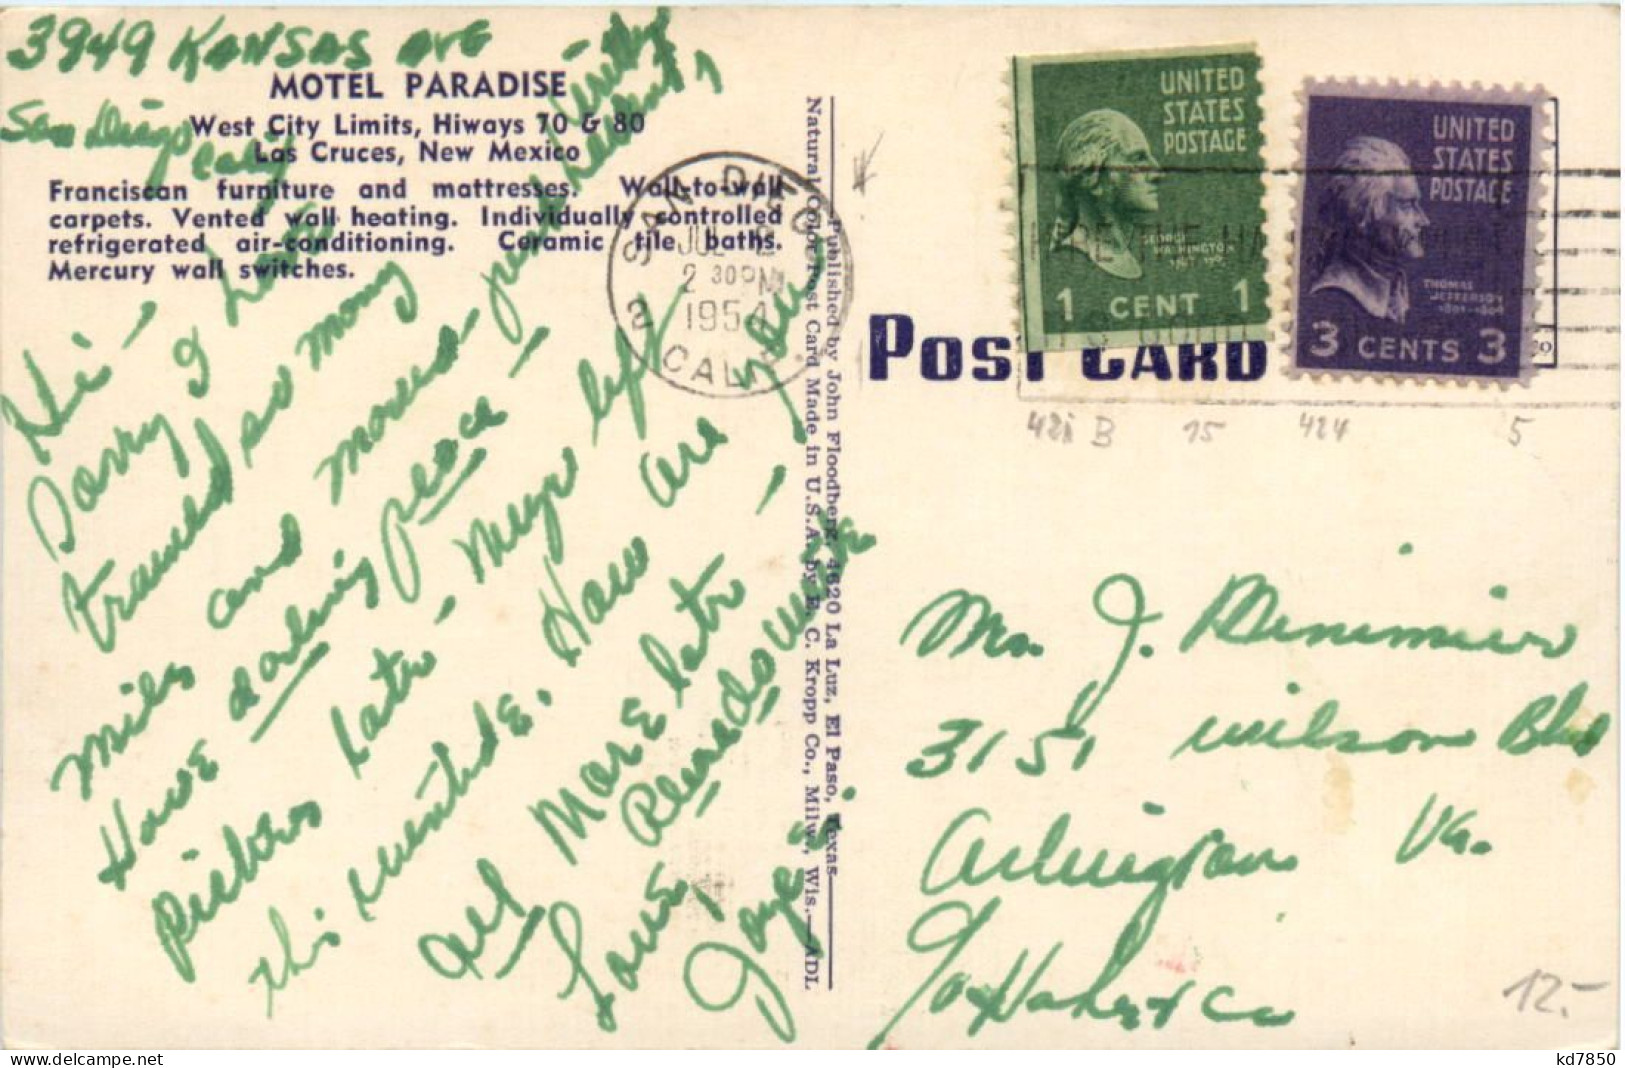 3949 KANSAS AVE
San Diego
Calif
MOTEL PARADISE
West City Limits, Hiways 70 & 80
Las Cruces, New Mexico
Franciscan furniture and mattresses. Wall-to-wall
carpets. Vented wall heating. Individually controlled
refrigerated air-conditioning. Ceramic tile baths.
Mercury wall switches.
Hi-
Sorry I have
traveled so many
miles and moved -
Have darling place
later -
this
How are you
All More later -
Love,
Joyce
Published by John Floodberg, 4620 La Luz, El Paso, Texas
Natural Color Post Card Made in U.S.A. by E. C. Kropp Co., Milw., Wis.—ADL
SAN DIEGO
JUL
2 30 PM
1954
CALIF.
2
UNITED
STATES
POSTAGE
GEORGE
WASHINGTON
1 CENT 1
UNITED
STATES
POSTAGE
THOMAS
JEFFERSON
1801-1809
3 CENTS 3
POST CARD
421 B 15 424 5
Mr. J.
3151 Wilson Blvd
Arlington Va.
Co
12.-
kd7850